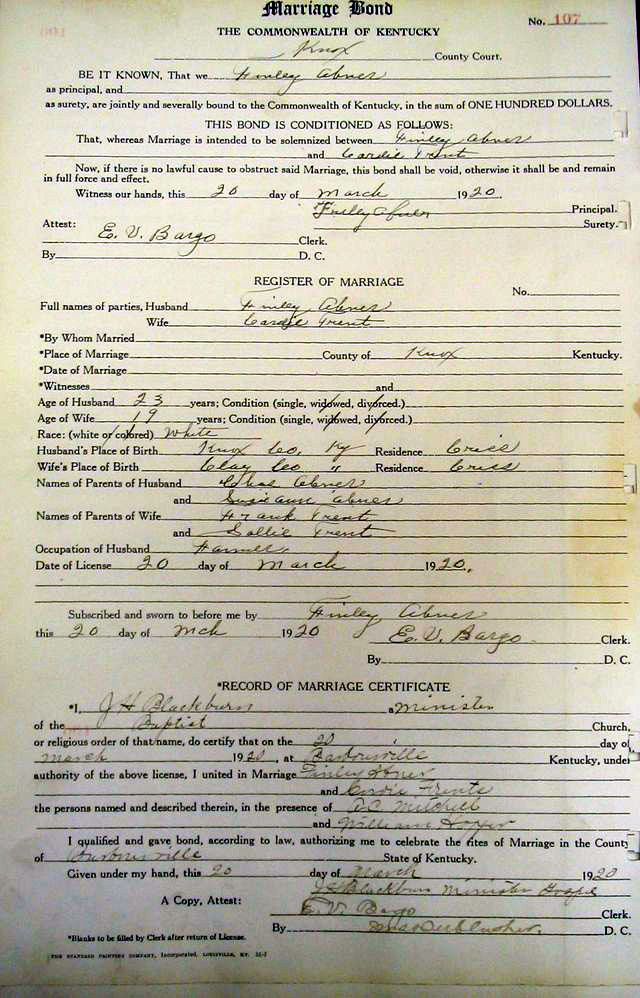 Marriage Bond
No. 107
THE COMMONWEALTH OF KENTUCKY
Knox County Court.
BE IT KNOWN, That we Finley Abner
as principal, and
as surety, are jointly and severally bound to the Commonwealth of Kentucky, in the sum of ONE HUNDRED DOLLARS.
THIS BOND IS CONDITIONED AS FOLLOWS:
That, whereas Marriage is intended to be solemnized between Finley Abner
and Cardie Trent
Now, if there is no lawful cause to obstruct said Marriage, this bond shall be void, otherwise it shall be and remain
in full force and effect.
Witness our hands, this 20 day of March 1920.
Finley Abner Principal.
Attest: Surety.
E. V. Bargo Clerk.
By D. C.
REGISTER OF MARRIAGE
No.
Full names of parties, Husband Finley Abner
Wife Cardie Trent
*By Whom Married
*Place of Marriage County of Knox Kentucky.
*Date of Marriage
*Witnesses and
Age of Husband 23 years; Condition (single, widowed, divorced.)
Age of Wife 19 years; Condition (single, widowed, divorced.)
Race: (white or colored) White
Husband's Place of Birth Knox Co, Ky Residence Criss
Wife's Place of Birth Clay Co " Residence Criss
Names of Parents of Husband Abner
and Abner
Names of Parents of Wife Frank Trent
and Sallie Trent
Occupation of Husband Farmer
Date of License 20 day of March 1920.
Subscribed and sworn to before me by Finley Abner
this 20 day of Mch 1920 E. V. Bargo Clerk.
By D. C.
*RECORD OF MARRIAGE CERTIFICATE
*I, J H Blackburn a Minister
of the Baptist Church,
or religious order of that name, do certify that on the 20 day of
March 1920, at Barbourville Kentucky, under
authority of the above license, I united in Marriage Finley
and Trents
the persons named and described therein, in the presence of Mitchell
and William
I qualified and gave bond, according to law, authorizing me to celebrate the rites of Marriage in the County
of Barbourville State of Kentucky.
Given under my hand, this 20 day of March 1920
J H Blackburn Minister Gospel
A Copy, Attest: E. V. Bargo Clerk.
By D. C.
*Blanks to be filled by Clerk after return of License.
THE STANDARD PRINTING COMPANY, Incorporated, LOUISVILLE, KY.